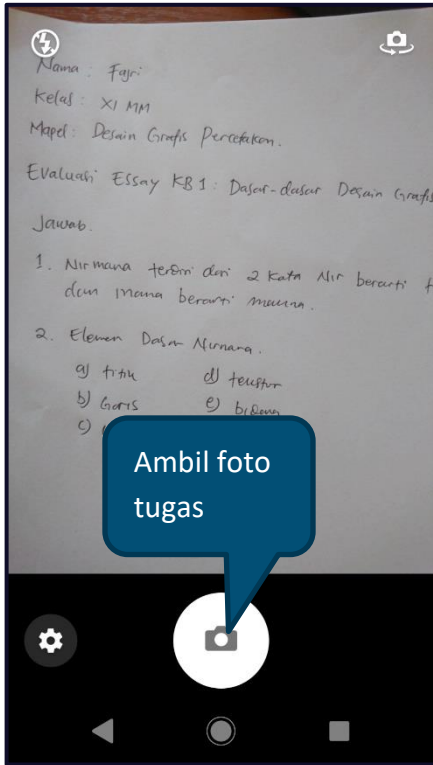 Nama : Fajri
Kelas : XI MM
Mapel : Desain Grafis Percetakan.
Evaluasi Essay KB 1 : Dasar-dasar Desain Grafis
Jawab.
1. Nirmana terdiri dari 2 kata Nir berarti
dan mana berarti makna.
2. Elemen Dasar Nirmana.
a) titik d) tekstur
b) Garis e) bidang
c)
Ambil foto
tugas